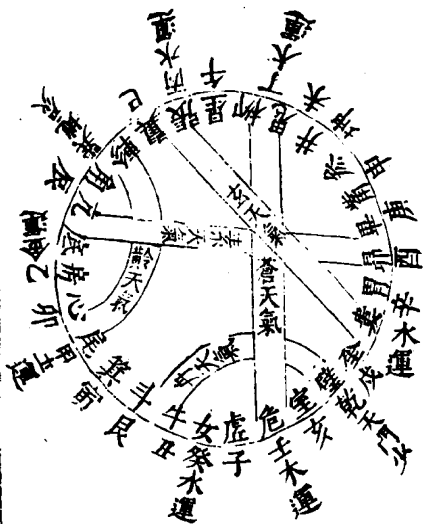 午
丁木運
未
坤
申
庚
酉
辛水運
戌
乾天門
亥
壬木運
子
癸水運
丑
艮
寅
甲土運
卯
乙金運
辰
巳
丙水運
星柳鬼井參觜畢昴胃婁奎壁室危虛女牛斗箕尾心房氐亢角軫翼張
玄天氣
素天氣
蒼天氣
黅天氣
丹天氣